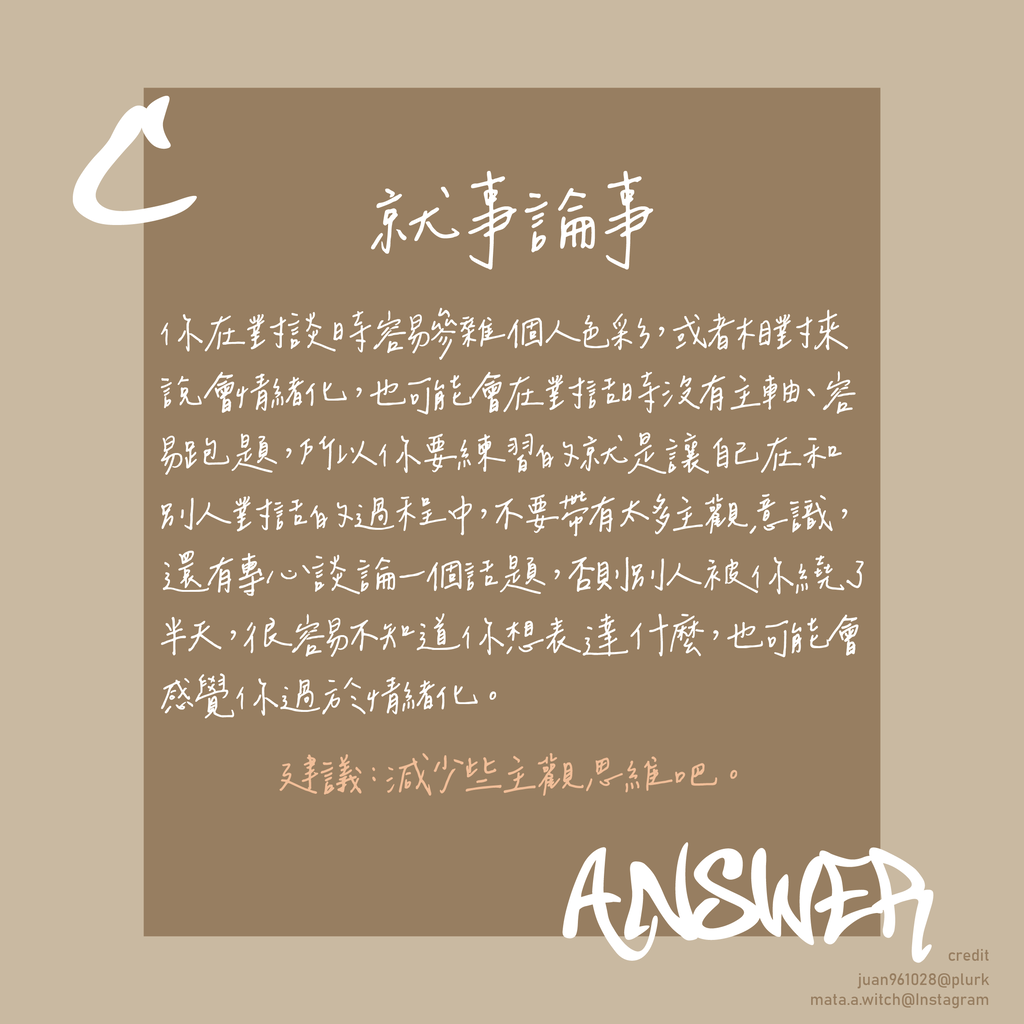 C
就事論事
你在對談時容易參雜個人色彩，或者相對來
說會情緒化，也可能會在對話時沒有主軸、容
易跑題，所以你要練習的就是讓自己在和
別人對話的過程中，不要帶有太多主觀意識，
還有專心談論一個話題，否則別人被你繞了
半天，很容易不知道你想表達什麼，也可能會
感覺你過於情緒化。
建議：減少些主觀思維吧。
ANSWER
credit
juan961028@plurk
mata.a.witch@Instagram